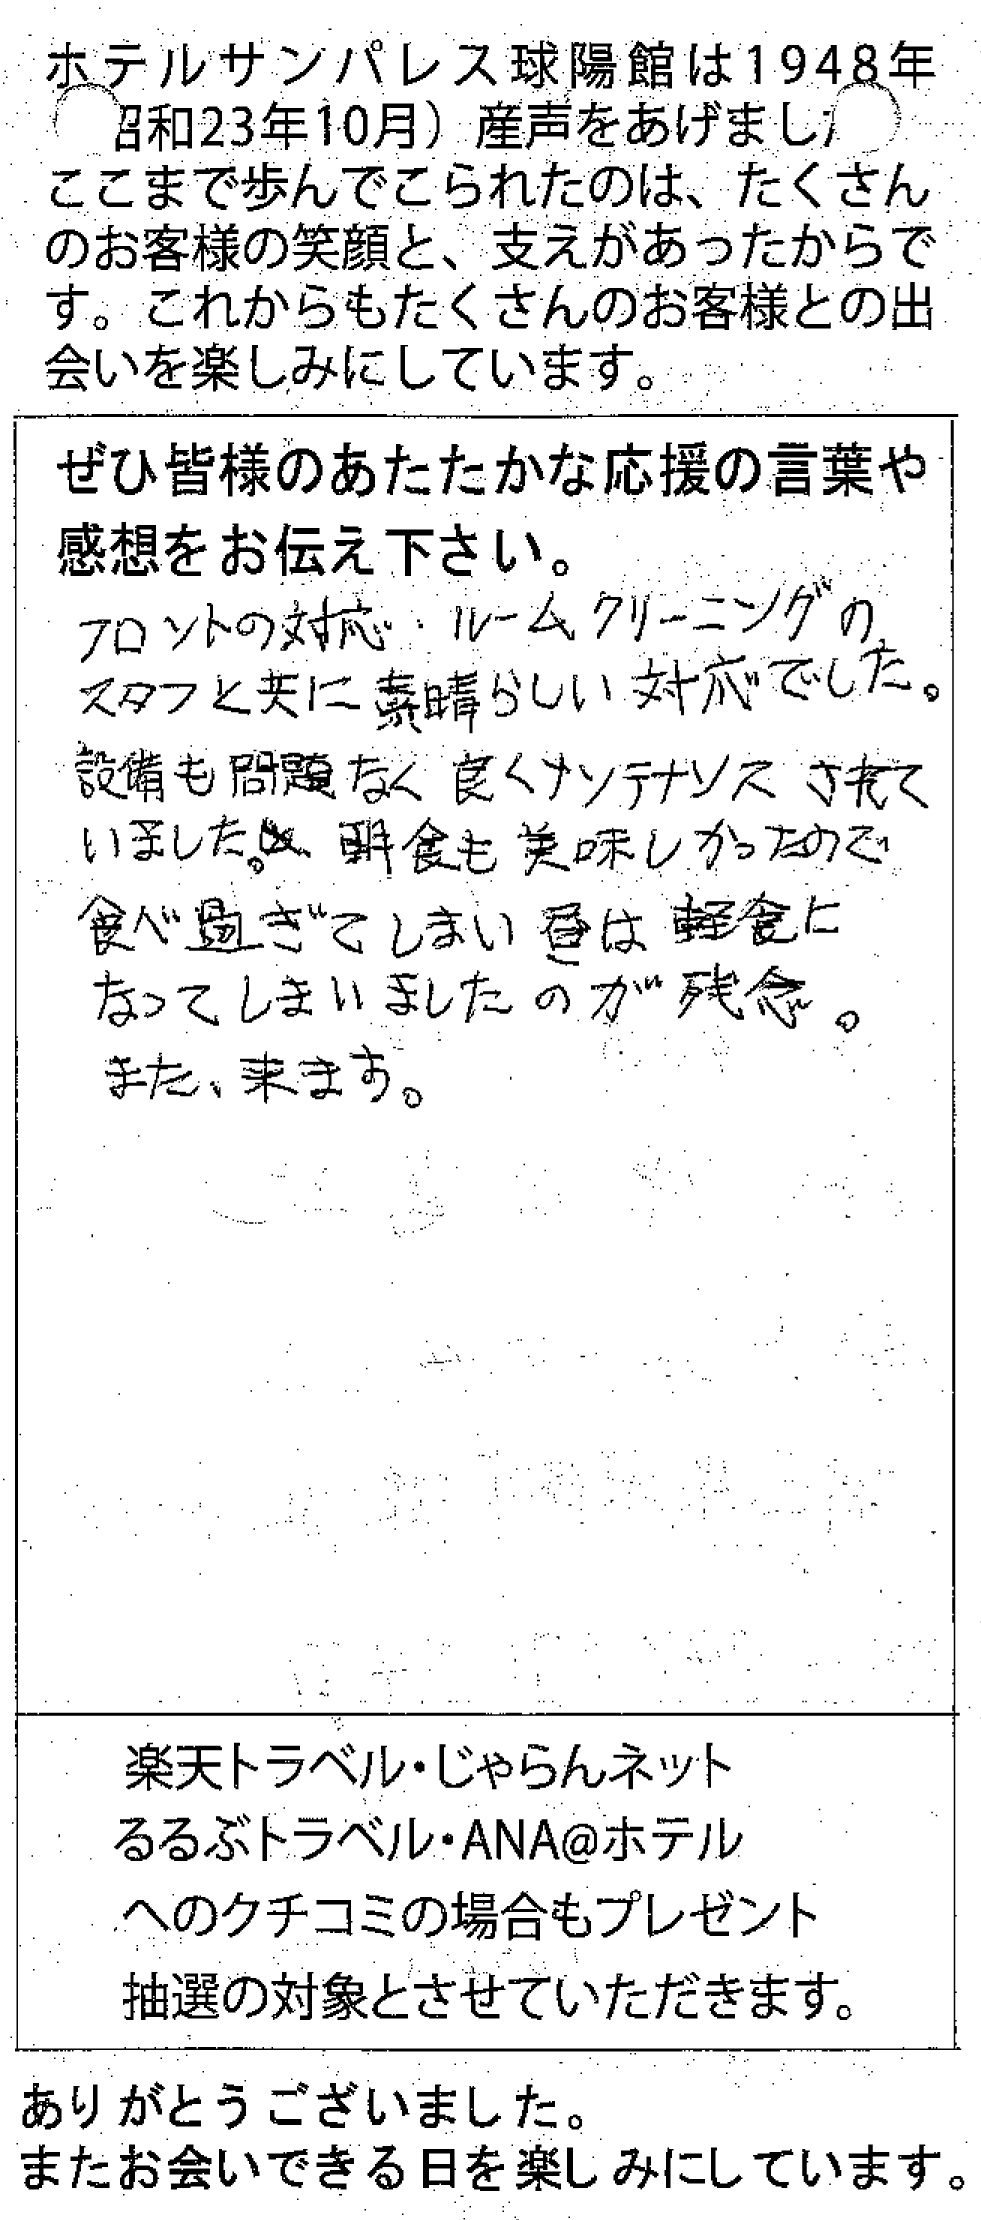 ホテルサンパレス球陽館は1948年
昭和23年10月）産声をあげまし
ここまで歩んでこられたのは、たくさん
のお客様の笑顔と、支えがあったからで
す。これからもたくさんのお客様との出
会いを楽しみにしています。
ぜひ皆様のあたたかな応援の言葉や
感想をお伝え下さい。
フロントの対応・ルームクリーニングの
スタフと共に素晴らしい対応でした。
設備も問題なく良くナンテナンスされて
いました。朝食も美味しかったので
食べ過ぎてしまい昼は軽食に
なってしまいましたのが残念。
また、来ます。
楽天トラベル・じゃらんネット
るるぶトラベル・ANA@ホテル
へのクチコミの場合もプレゼント
抽選の対象とさせていただきます。
ありがとうございました。
またお会いできる日を楽しみにしています。